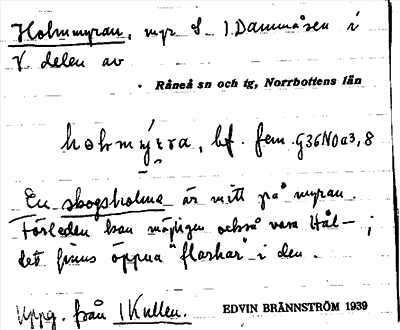 Holmmyran, myr S 1 Dammåsen i
V delen av
Råneå sn och tg, Norrbottens län
bf. fem. G36N0a3,8
En skogsholme är mitt på myran.
Förleden kan möjligen också vara Hål-;
det finns öppna "flarkar" i den.
Uppg. från 1 Kullen. EDVIN BRÄNNSTRÖM 1939